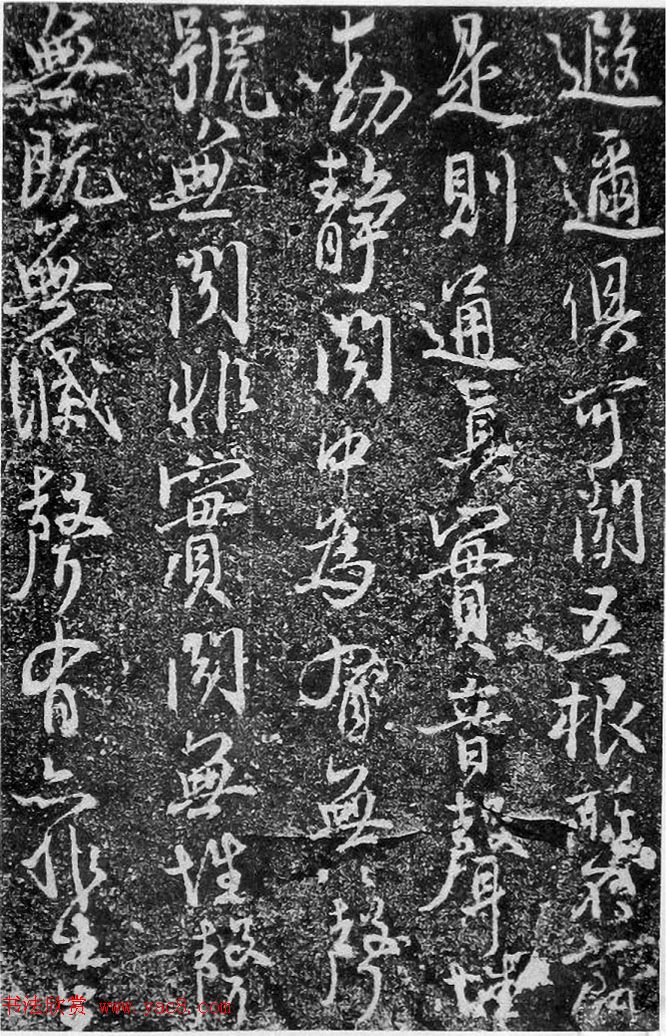 遐邇俱可聞五根所
是則通真實音聲性
動靜聞中為有無〻聲
號無聞非實聞無性聲
無既無滅聲有亦非生
书法欣赏 www.yac8.com